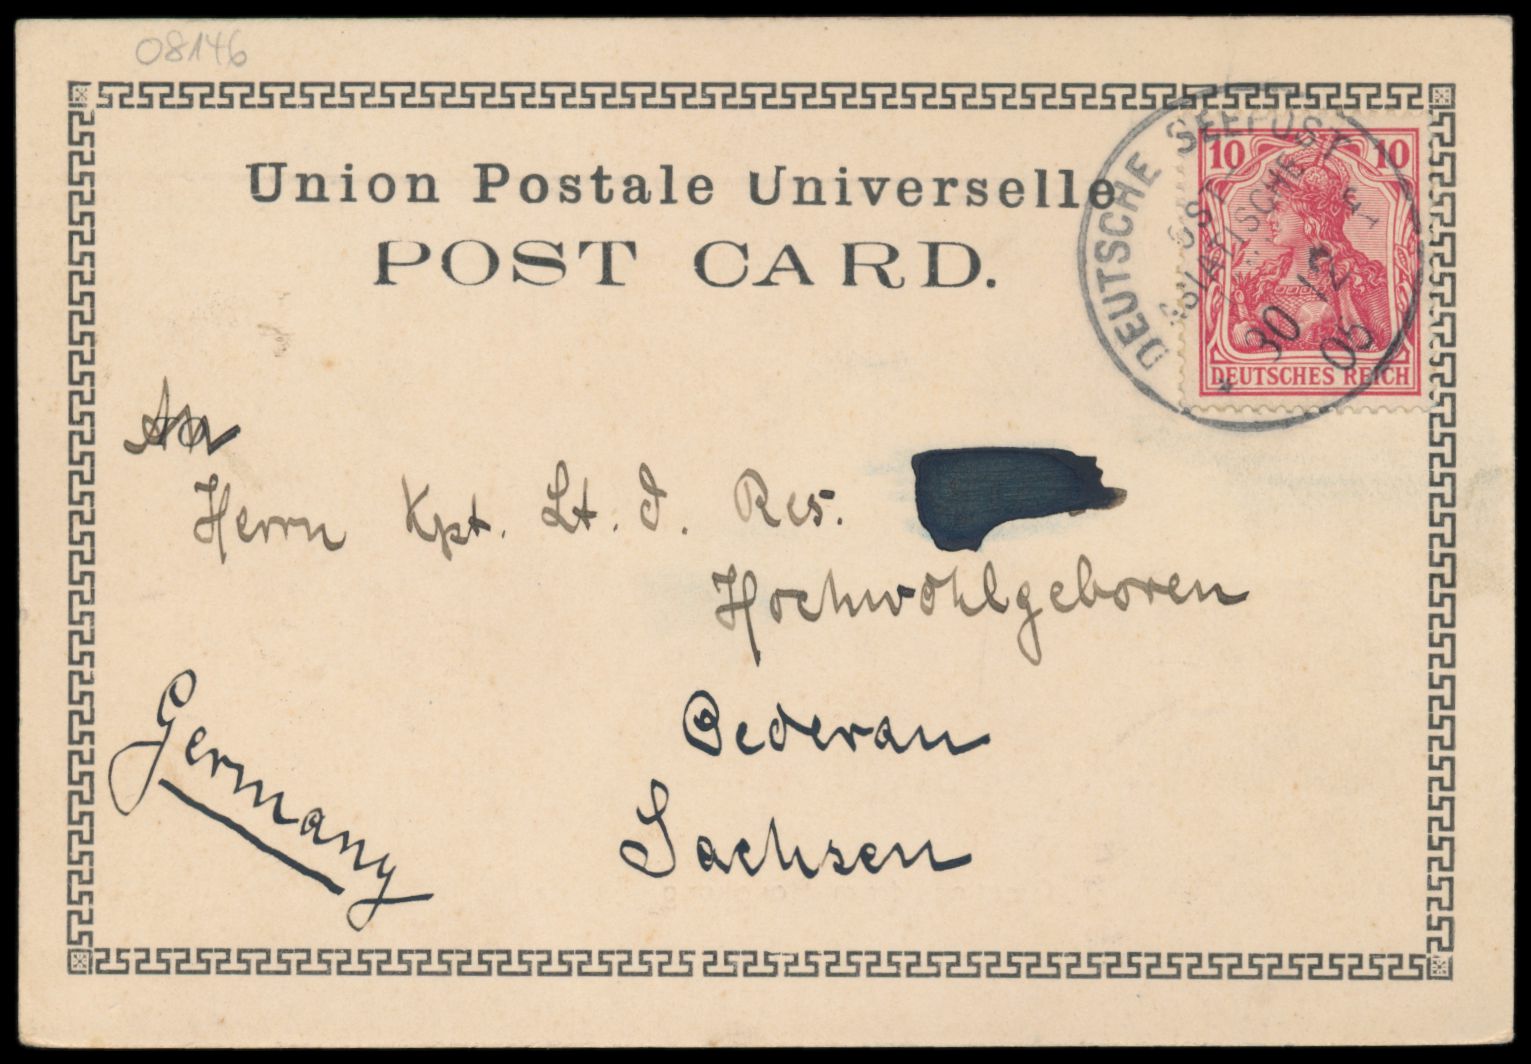 08146
Union Postale Universelle
POST CARD.
DEUTSCHE SEEPOST
OST-
ASIATISCHE
30 12 05
*
10 10
DEUTSCHES REICH
An
Herrn Kpt. Lt. d. Res.
Hochwohlgeboren
Oederan
Sachsen
Germany